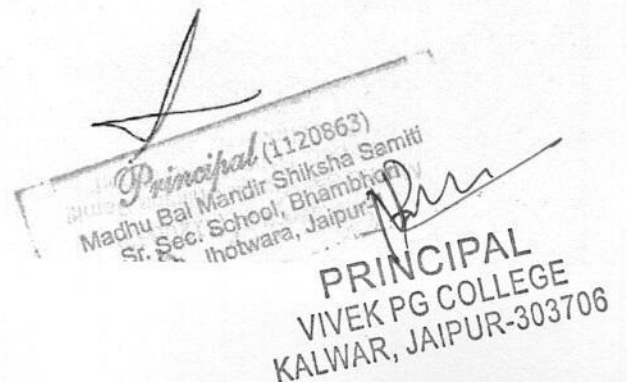 Principal (1120863)
Madhu Bal Mandir Shiksha Samiti
Sr. Sec. School,
Jhotwara, Jaipur
PRINCIPAL
VIVEK PG COLLEGE
KALWAR, JAIPUR-303706